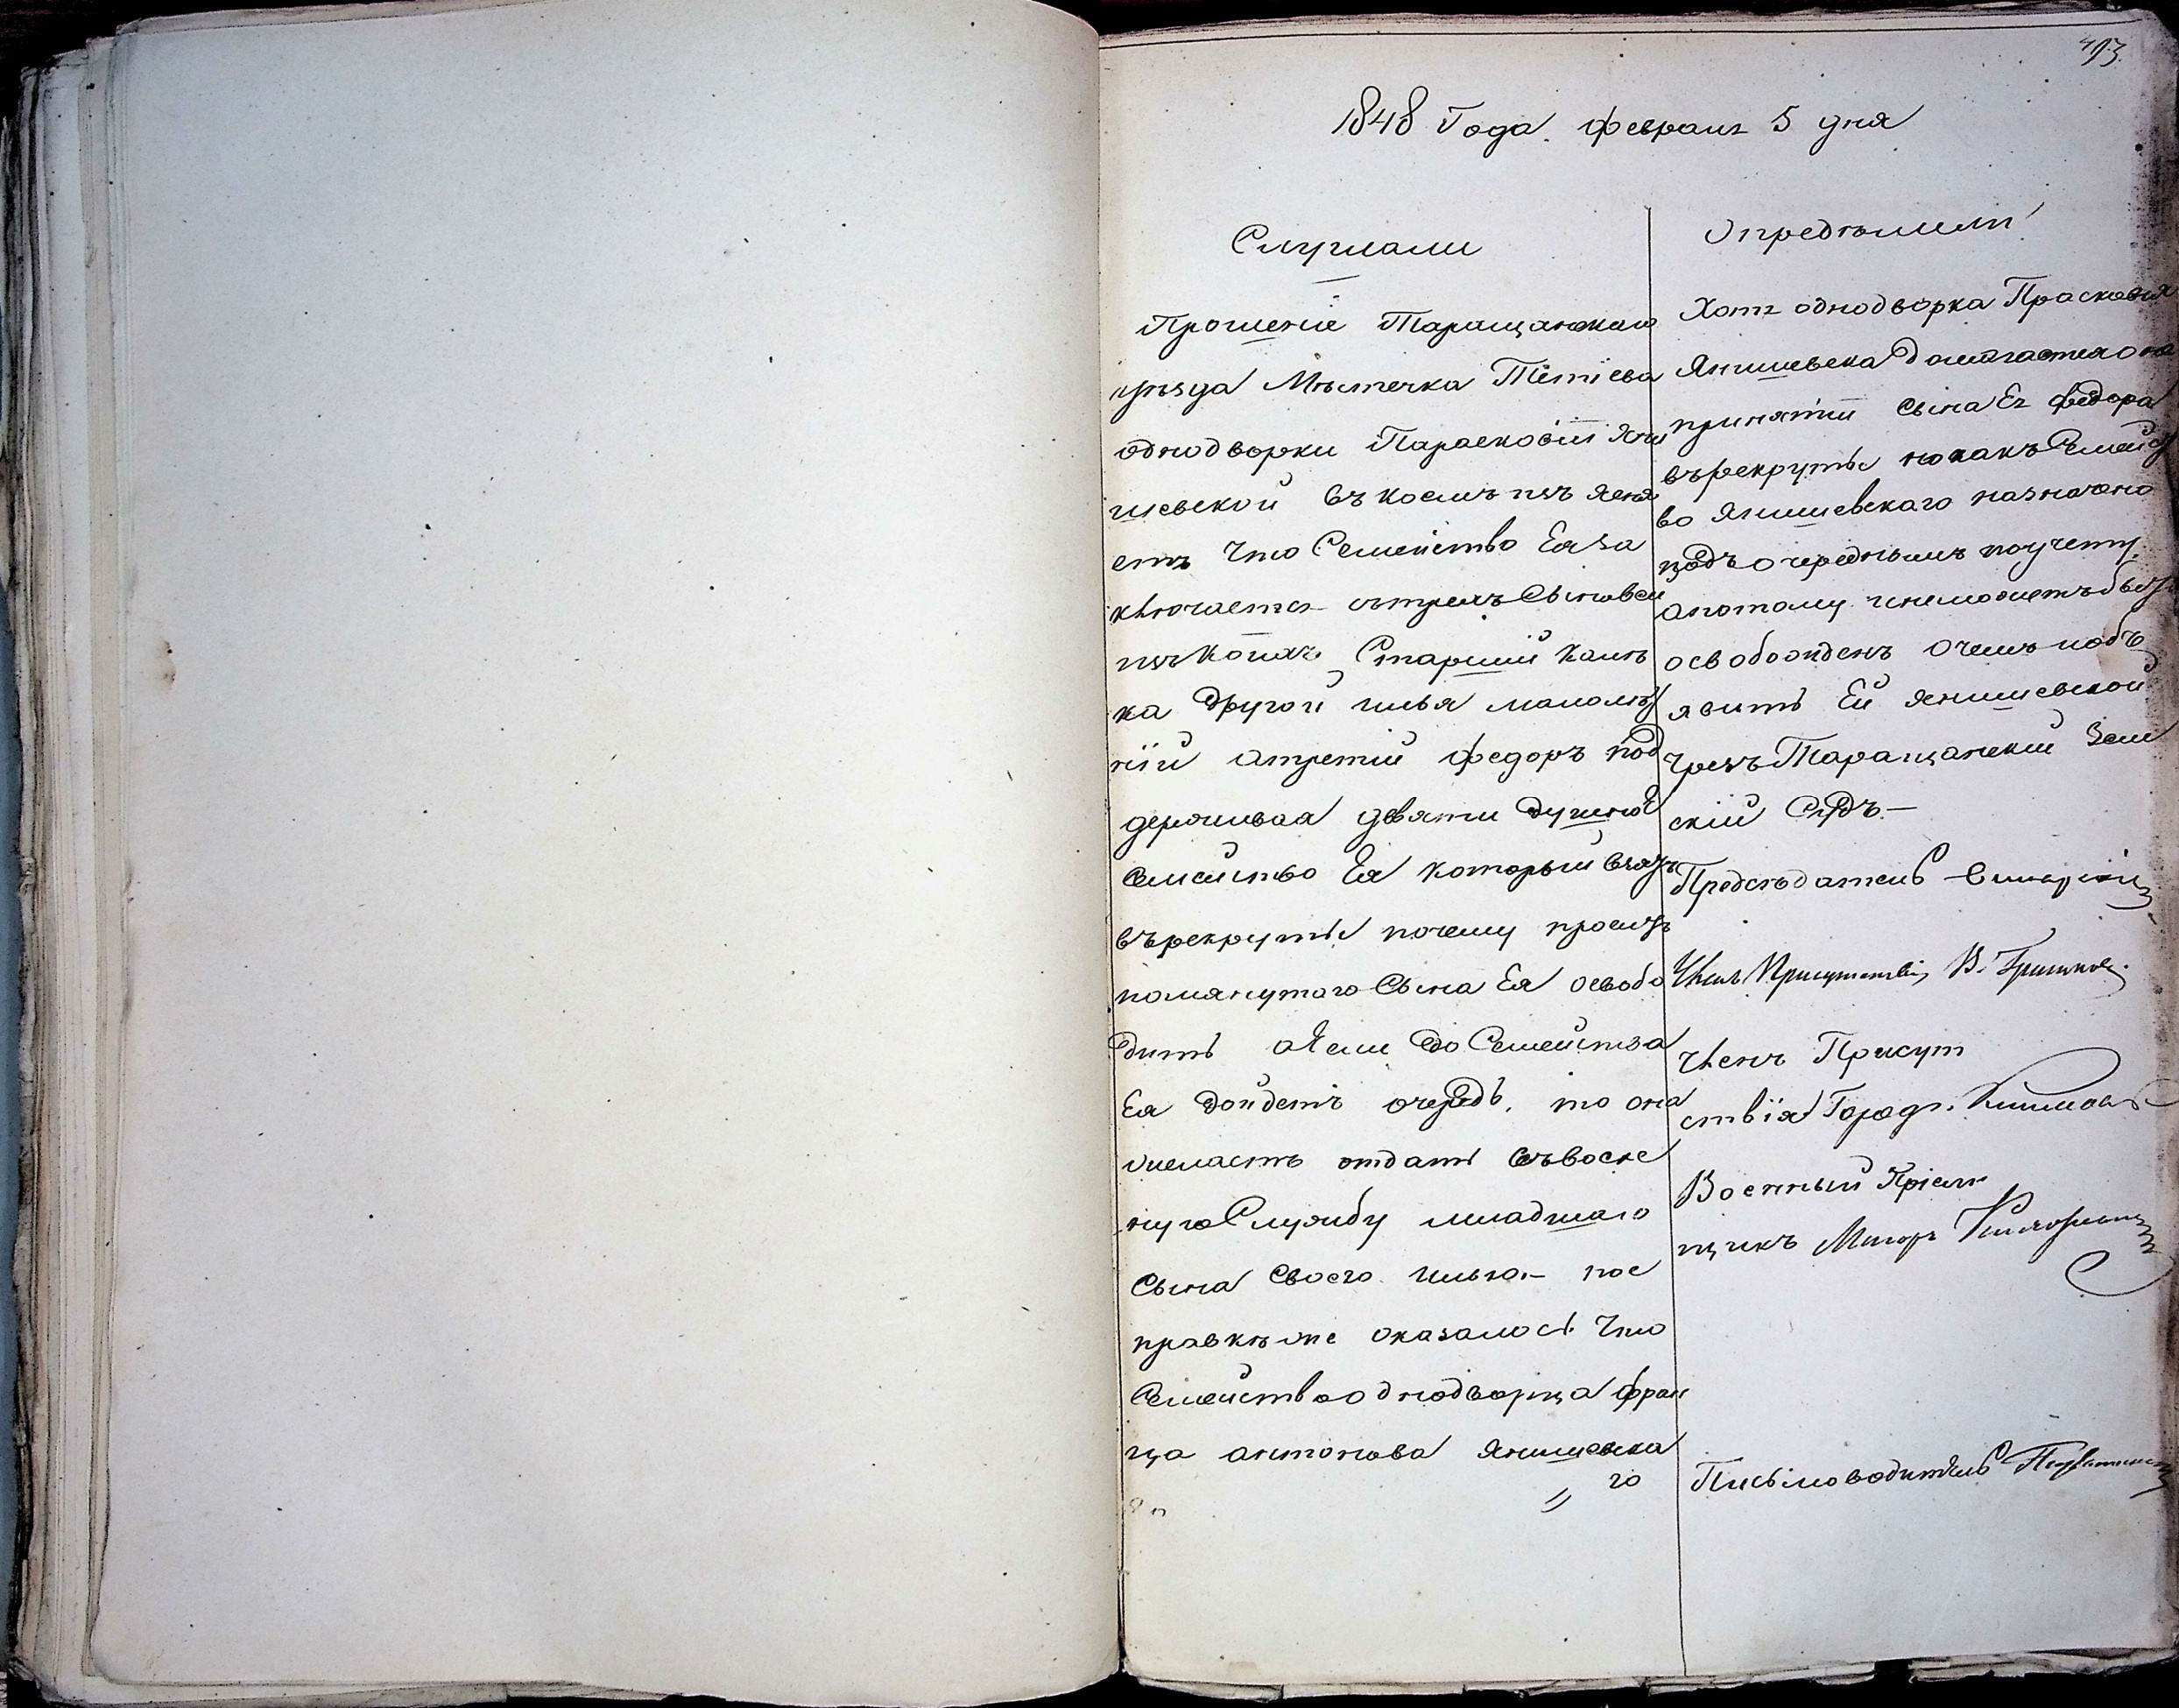 493
1848 Года. февраля 5 дня
Слушали
Прошеніе Таращанскаго
уѣзда Мѣстечка Тетіева
однодворки Парасковіи Яни
шевской въ коемъ изъясня
етъ Что Семейство Ея за
ключается изъ трехъ Сыновей
изъ коихъ Старшій калѣ
ка другой илья малолѣт
ній а третій федоръ под
держивая девяти душное
Семейство Ея который взятъ
въ рекруты почему проситъ
помянутаго Сына Ея освобо
дить а Если до Семейства
Ея дойдетъ очередь. то она
желаетъ отдать въ воен
ную Службу младшаго
Сына Своего илью.— по с
правкѣ же оказалось Что
Семейство однодворца фран
ца антонова Янишевска
го
Опредѣлили
Хотя однодворка Прасковія
Янишевска домагается о не
принятіи Сына Ея федора
въ рекруты но какъ Семейст
во Янишевскаго назначено
подъ очереднымъ по учету
а потому и не можетъ быть
освобожденъ о чемъ и объ
явить Ей Янишевской
чрезъ Таращанскій Зем
скій Судъ.—
Предсѣдатель
Членъ Присутствія В.
Членъ Присут
ствія Город.
Военный Пріем
щикъ Маіоръ
Письмоводитель